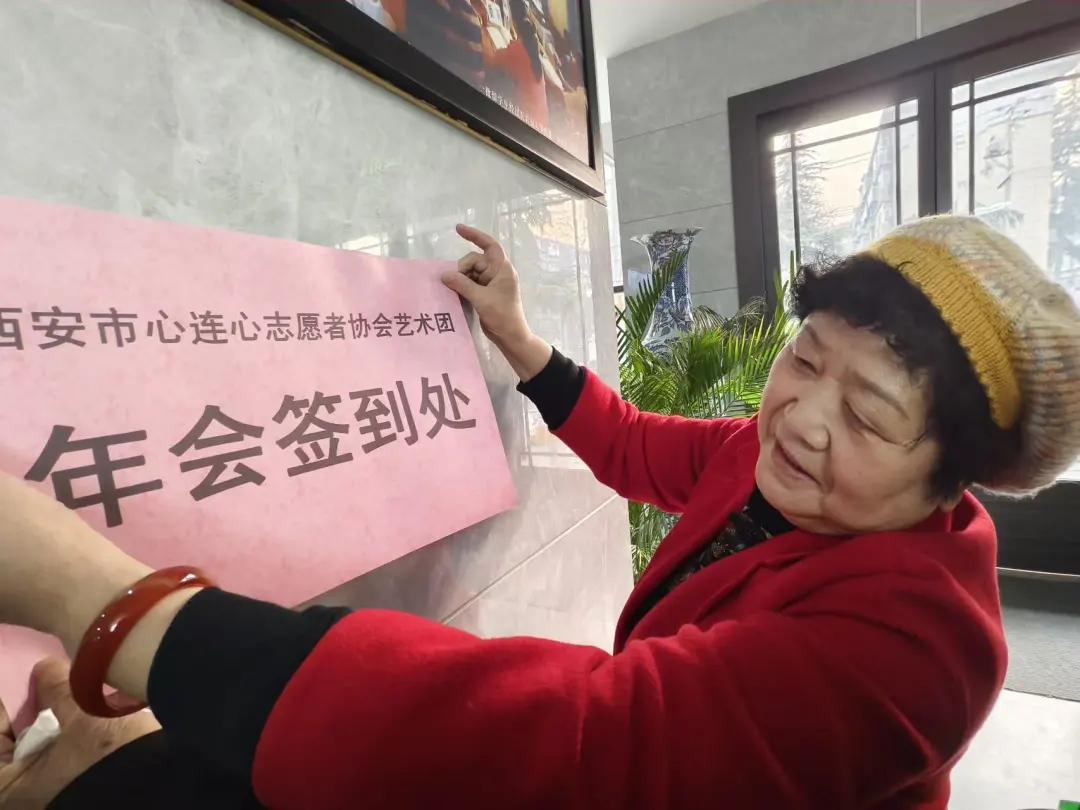 西安市心连心志愿者协会艺术团
年会签到处